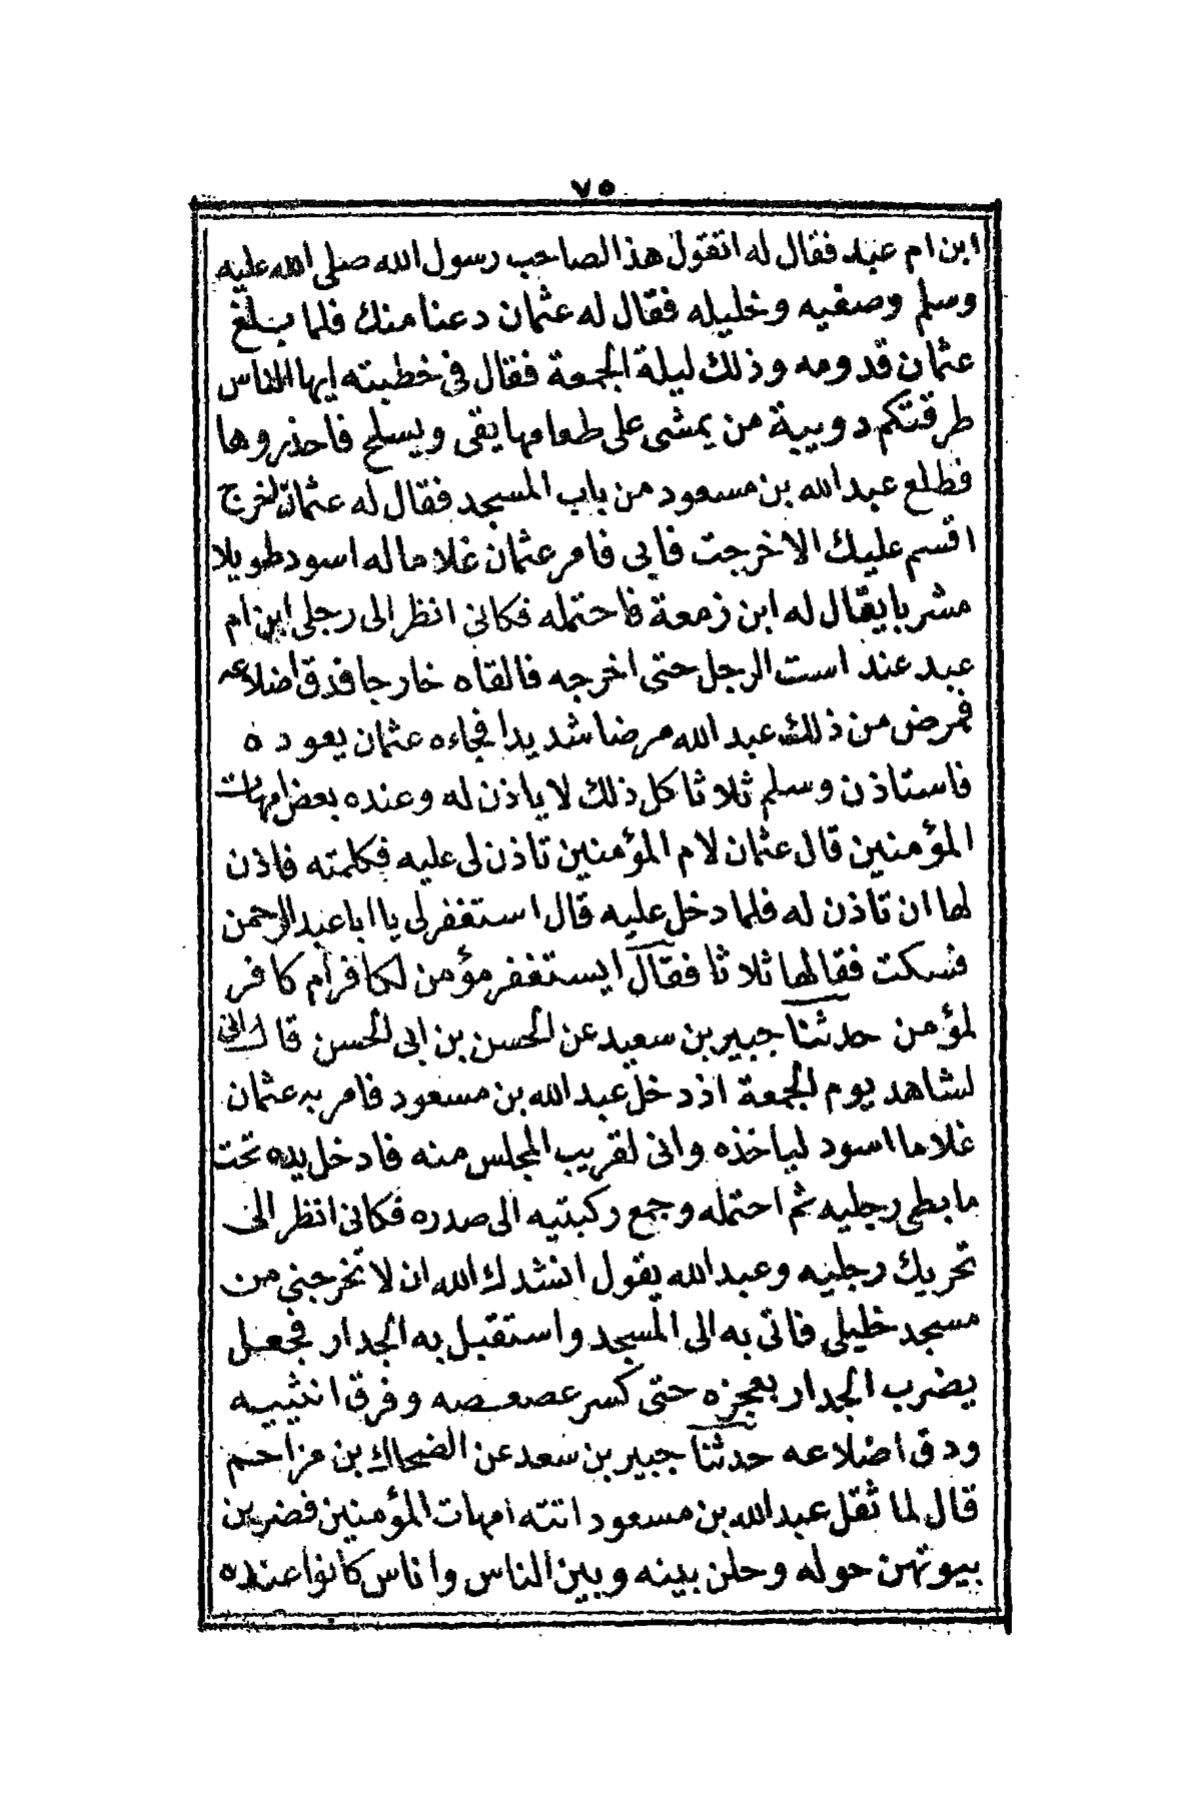 ٧٥
ابن ام عبد فقال له اتقول هذا لصاحب رسول الله صلى الله عليه
وسلم وصفيه وخليله فقال له عثمان دعنا منك فلما بلغ
عثمان قدومه وذلك ليلة الجمعة فقال في خطبته ايها الناس
طرقتكم دويبة من يمشى على طعامها يقى ويسلح فاحذروها
فطلع عبد الله بن مسعود من باب المسجد فقال له عثمان لخرج
اقسم عليك الا خرجت فابى فامر عثمان غلاما له اسود طويلا
مشربا يقال له ابن زمعة فاحتمله فكانى انظر الى رجلى ابن ام
عبد عند است الرجل حتى اخرجه فالقاه خارجا فدق اضلاعه
فمرض من ذلك عبد الله مرضا شديدا فجاءه عثمان يعوده
فاستاذن وسلم ثلاثا كل ذلك لا ياذن له وعنده بعض امهات
المؤمنين قال عثمان لام المؤمنين تاذن لى عليه فكلمته فاذن
لها ان تاذن له فلما دخل عليه قال استغفر لى يا ابا عبد الرحمن
فسكت فقالها ثلاثا فقال ايستغفر مؤمن لكافر ام كافر
لمؤمن حدثنا جبير بن سعيد عن الحسن بن ابى الحسن قال انى
لشاهد يوم الجمعة اذ دخل عبد الله بن مسعود فامر به عثمان
غلاما اسود لياخذه وانى لقريب المجلس منه فادخل يده تحت
مابطى رجليه ثم احتمله وجمع ركبتيه الى صدره فكانى انظر الى
تحريك رجليه وعبد الله يقول انشدك الله ان لا تخرجنى من
مسجد خليلى فاتى به الى المسجد واستقبل به الجدار فجعل
يضرب الجدار بعجزه حتى كسر عصعصه وفرق انثييه
ودق اضلاعه حدثنا جبير بن سعد عن الضحاك بن مزاحم
قال لما ثقل عبد الله بن مسعود اتته امهات المؤمنين فضربن
بيوتهن حوله وحلن بينه وبين الناس واناس كانوا عنده